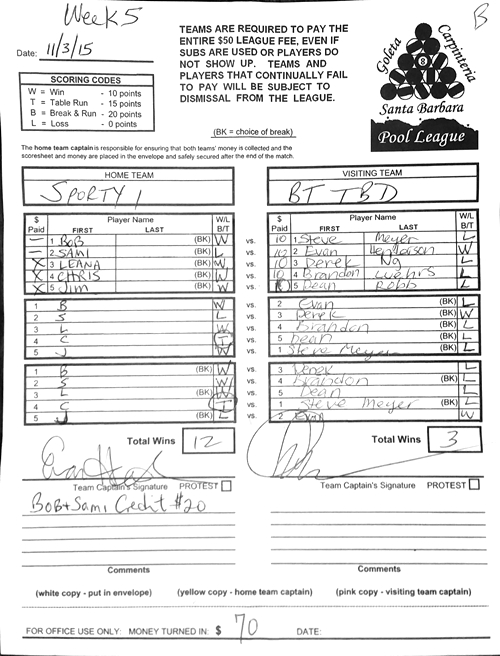 Week 5
B
Date: 11/3/15
TEAMS ARE REQUIRED TO PAY THE
ENTIRE $50 LEAGUE FEE, EVEN IF
SUBS ARE USED OR PLAYERS DO
NOT SHOW UP. TEAMS AND
PLAYERS THAT CONTINUALLY FAIL
TO PAY WILL BE SUBJECT TO
DISMISSAL FROM THE LEAGUE.
SCORING CODES
W = Win - 10 points
T = Table Run - 15 points
B = Break & Run - 20 points
L = Loss - 0 points
Goleta
Carpinteria
8
Santa Barbara
Pool League
(BK = choice of break)
The home team captain is responsible for ensuring that both teams' money is collected and the
scoresheet and money are placed in the envelope and safely secured after the end of the match.
HOME TEAM VISITING TEAM
SPORTY 1 BT TBD
$ Paid Player Name FIRST LAST W/L B/T $ Paid Player Name FIRST LAST W/L B/T
— 1 BOB (BK) W vs. 10 1 Steve Meyer L
— 2 SAMI (BK) L vs. 10 2 Evan Henderson W
X 3 LEANA (BK) W vs. 10 3 Derek Ng L
X 4 CHRIS (BK) W vs. 10 4 Brandon Luehrs L
X 5 JIM (BK) W vs. 10 5 Dean Robb L
1 B W vs. 2 Evan (BK) L
2 S L vs. 3 Derek (BK) W
3 L W vs. 4 Brandon (BK) L
4 C T vs. 5 Dean (BK) L
5 J W vs. 1 Steve Meyer (BK) L
1 B (BK) W vs. 3 Derek L
2 S W vs. 4 Brandon (BK) L
3 L (BK) W vs. 5 Dean L
4 C T vs. 1 Steve Meyer (BK) L
5 J (BK) L vs. 2 Evan W
Total Wins 12 Total Wins 3
Team Captain's Signature PROTEST Team Captain's Signature PROTEST
BOB + Sami Credit $20
Comments Comments
(white copy - put in envelope) (yellow copy - home team captain) (pink copy - visiting team captain)
FOR OFFICE USE ONLY: MONEY TURNED IN: $ 70 DATE: